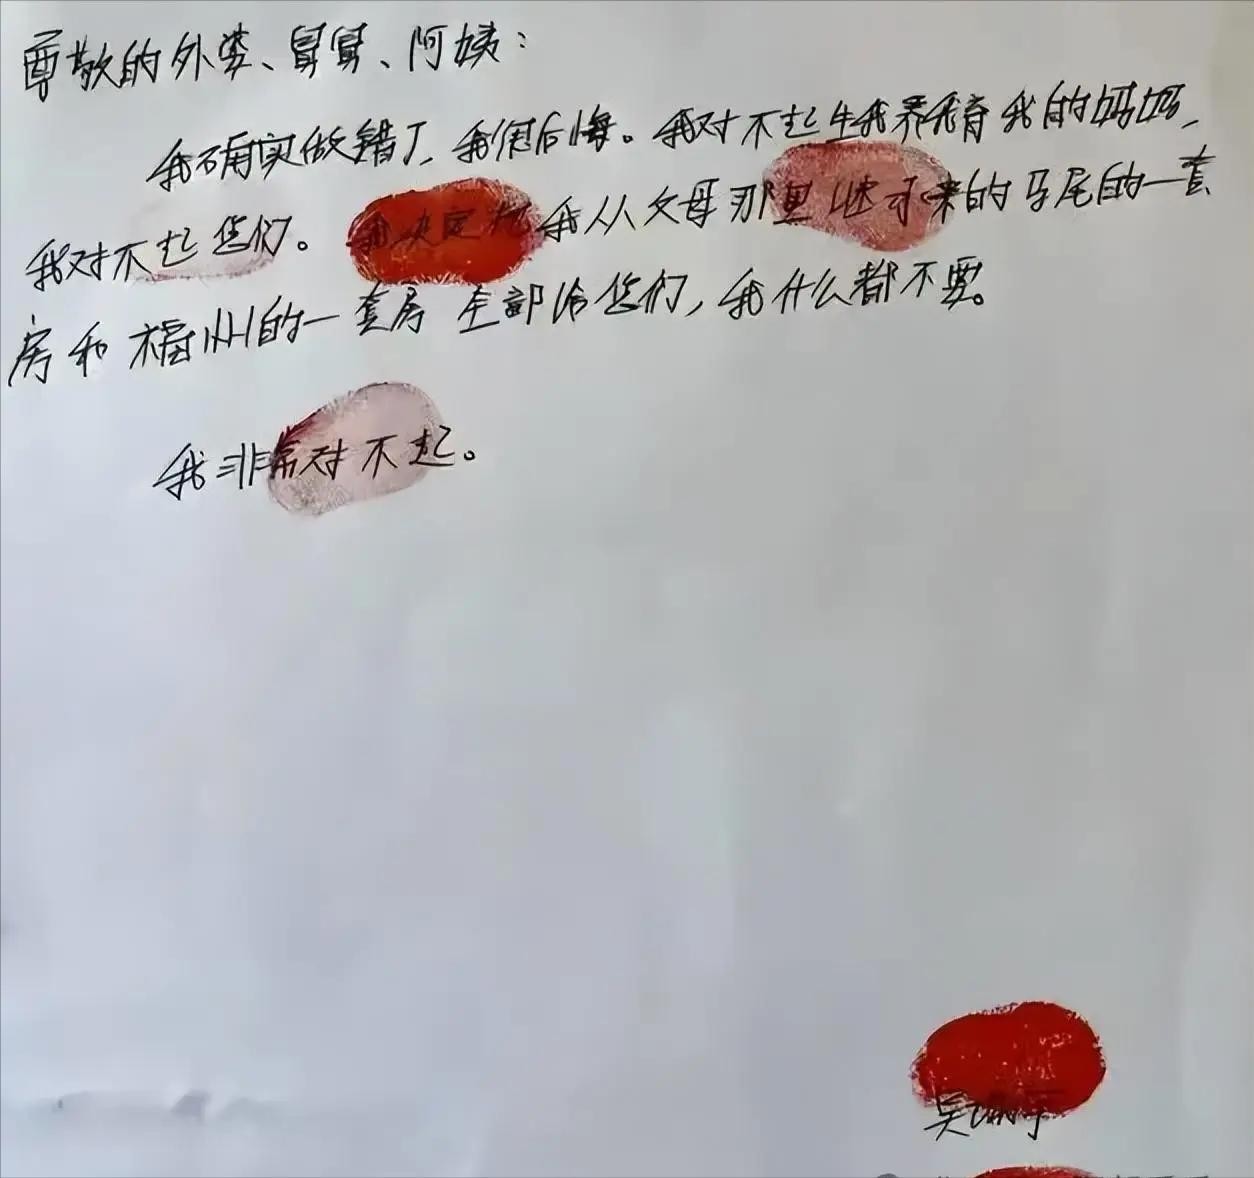 尊敬的外婆、舅舅、阿姨：
我确实做错了，我很后悔。我对不起生我养我育我的妈妈，
我对不起您们。我决定把我从父母那里继承来的马尾的一套
房和福州的一套房全部给您们，我什么都不要。
我非常对不起。
吴谢宇